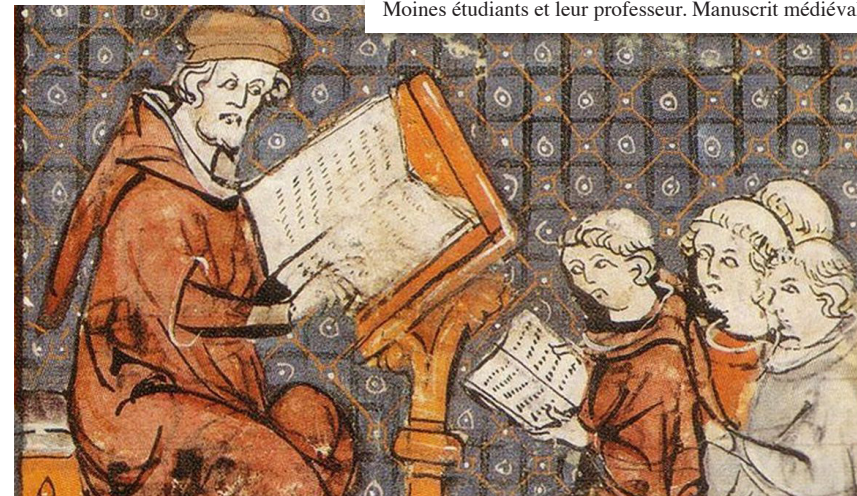 Moines étudiants et leur professeur. Manuscrit médiéval